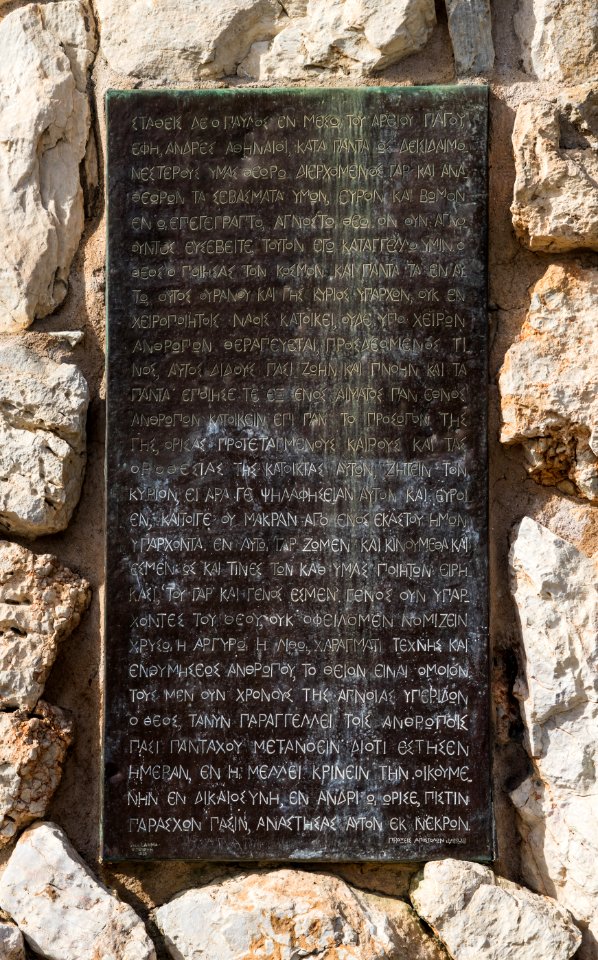 ΣΤΑΘΕΙΣ ΔΕ Ο ΠΑΥΛΟΣ ΕΝ ΜΕΣΩ, ΤΟΥ ΑΡΕΙΟΥ ΠΑΓΟΥ
ΕΦΗ, ΑΝΔΡΕΣ ΑΘΗΝΑΙΟΙ, ΚΑΤΑ ΠΑΝΤΑ ΩΣ ΔΕΙΣΙΔΑΙΜΟ
ΝΕΣΤΕΡΟΥΣ ΥΜΑΣ ΘΕΩΡΩ. ΔΙΕΡΧΟΜΕΝΟΣ ΓΑΡ ΚΑΙ ΑΝΑ
ΘΕΩΡΩΝ ΤΑ ΣΕΒΑΣΜΑΤΑ ΥΜΩΝ, ΕΥΡΟΝ ΚΑΙ ΒΩΜΟΝ
ΕΝ Ω, ΕΠΕΓΕΓΡΑΠΤΟ, ΑΓΝΩΣΤΩ, ΘΕΩ. ΟΝ ΟΥΝ ΑΓΝΟ
ΟΥΝΤΕΣ ΕΥΣΕΒΕΙΤΕ, ΤΟΥΤΟΝ ΕΓΩ ΚΑΤΑΓΓΕΛΛΩ ΥΜΙΝ. Ο
ΘΕΟΣ Ο ΠΟΙΗΣΑΣ ΤΟΝ ΚΟΣΜΟΝ ΚΑΙ ΠΑΝΤΑ ΤΑ ΕΝ ΑΣ
ΤΩ, ΟΥΤΟΣ ΟΥΡΑΝΟΥ ΚΑΙ ΓΗΣ ΚΥΡΙΟΣ ΥΠΑΡΧΩΝ, ΟΥΚ ΕΝ
ΧΕΙΡΟΠΟΙΗΤΟΙΣ ΝΑΟΙΣ ΚΑΤΟΙΚΕΙ, ΟΥΔΕ ΥΠΟ ΧΕΙΡΩΝ
ΑΝΘΡΩΠΩΝ ΘΕΡΑΠΕΥΕΤΑΙ, ΠΡΟΣΔΕΟΜΕΝΟΣ ΤΙ
ΝΟΣ, ΑΥΤΟΣ ΔΙΔΟΥΣ ΠΑΣΙ ΖΩΗΝ ΚΑΙ ΠΝΟΗΝ ΚΑΙ ΤΑ
ΠΑΝΤΑ ΕΠΟΙΗΣΕ ΤΕ ΕΞ ΕΝΟΣ ΑΙΜΑΤΟΣ ΠΑΝ ΕΘΝΟΣ
ΑΝΘΡΩΠΩΝ ΚΑΤΟΙΚΕΙΝ ΕΠΙ ΠΑΝ ΤΟ ΠΡΟΣΩΠΟΝ ΤΗΣ
ΓΗΣ, ΟΡΙΣΑΣ ΠΡΟΤΕΤΑΓΜΕΝΟΥΣ ΚΑΙΡΟΥΣ ΚΑΙ ΤΑΣ
ΟΡΟΘΕΣΙΑΣ ΤΗΣ ΚΑΤΟΙΚΙΑΣ ΑΥΤΩΝ ΖΗΤΕΙΝ ΤΟΝ
ΚΥΡΙΟΝ, ΕΙ ΑΡΑ ΓΕ ΨΗΛΑΦΗΣΕΙΑΝ ΑΥΤΟΝ ΚΑΙ ΕΥΡΟΙ
ΕΝ, ΚΑΙΤΟΙΓΕ ΟΥ ΜΑΚΡΑΝ ΑΠΟ ΕΝΟΣ ΕΚΑΣΤΟΥ ΗΜΩΝ
ΥΠΑΡΧΟΝΤΑ. ΕΝ ΑΥΤΩ, ΓΑΡ ΖΩΜΕΝ ΚΑΙ ΚΙΝΟΥΜΕΘΑ ΚΑΙ
ΕΣΜΕΝ, ΩΣ ΚΑΙ ΤΙΝΕΣ ΤΩΝ ΚΑΘ ΥΜΑΣ ΠΟΙΗΤΩΝ ΕΙΡΗ
ΚΑΣΙ, ΤΟΥ ΓΑΡ ΚΑΙ ΓΕΝΟΣ ΕΣΜΕΝ. ΓΕΝΟΣ ΟΥΝ ΥΠΑΡ
ΧΟΝΤΕΣ ΤΟΥ ΘΕΟΥ, ΟΥΚ ΟΦΕΙΛΟΜΕΝ ΝΟΜΙΖΕΙΝ
ΧΡΥΣΩ, Η ΑΡΓΥΡΩ, Η ΛΙΘΩ, ΧΑΡΑΓΜΑΤΙ ΤΕΧΝΗΣ ΚΑΙ
ΕΝΘΥΜΗΣΕΩΣ ΑΝΘΡΩΠΟΥ, ΤΟ ΘΕΙΟΝ ΕΙΝΑΙ ΟΜΟΙΟΝ.
ΤΟΥΣ ΜΕΝ ΟΥΝ ΧΡΟΝΟΥΣ ΤΗΣ ΑΓΝΟΙΑΣ ΥΠΕΡΙΔΩΝ
Ο ΘΕΟΣ, ΤΑΝΥΝ ΠΑΡΑΓΓΕΛΛΕΙ ΤΟΙΣ ΑΝΘΡΩΠΟΙΣ
ΠΑΣΙ ΠΑΝΤΑΧΟΥ ΜΕΤΑΝΟΕΙΝ ΔΙΟΤΙ ΕΣΤΗΣΕΝ
ΗΜΕΡΑΝ, ΕΝ Η, ΜΕΛΛΕΙ ΚΡΙΝΕΙΝ ΤΗΝ ΟΙΚΟΥΜΕ
ΝΗΝ ΕΝ ΔΙΚΑΙΟΣΥΝΗ, ΕΝ ΑΝΔΡΙ Ω, ΩΡΙΣΕ, ΠΙΣΤΙΝ
ΠΑΡΑΣΧΩΝ ΠΑΣΙΝ, ΑΝΑΣΤΗΣΑΣ ΑΥΤΟΝ ΕΚ ΝΕΚΡΩΝ.
ΠΡΑΞΕΙΣ ΑΠΟΣΤΟΛΩΝ